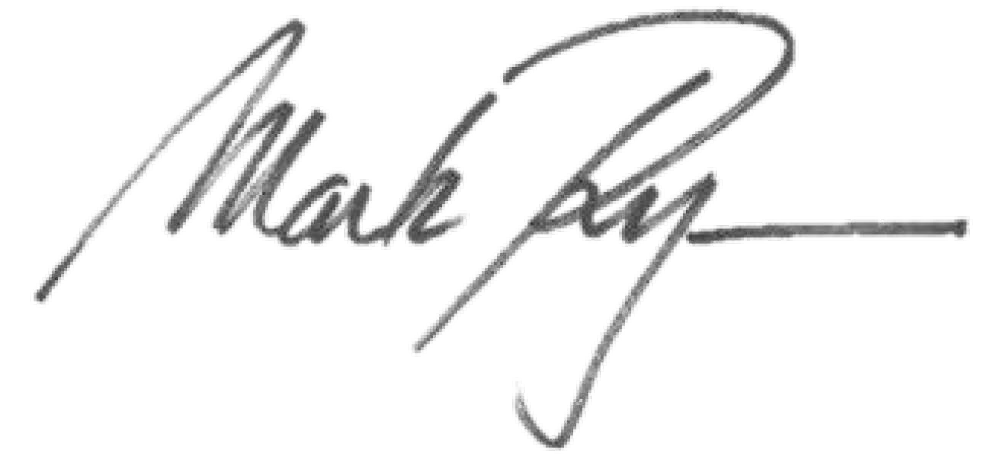 Mark Ray